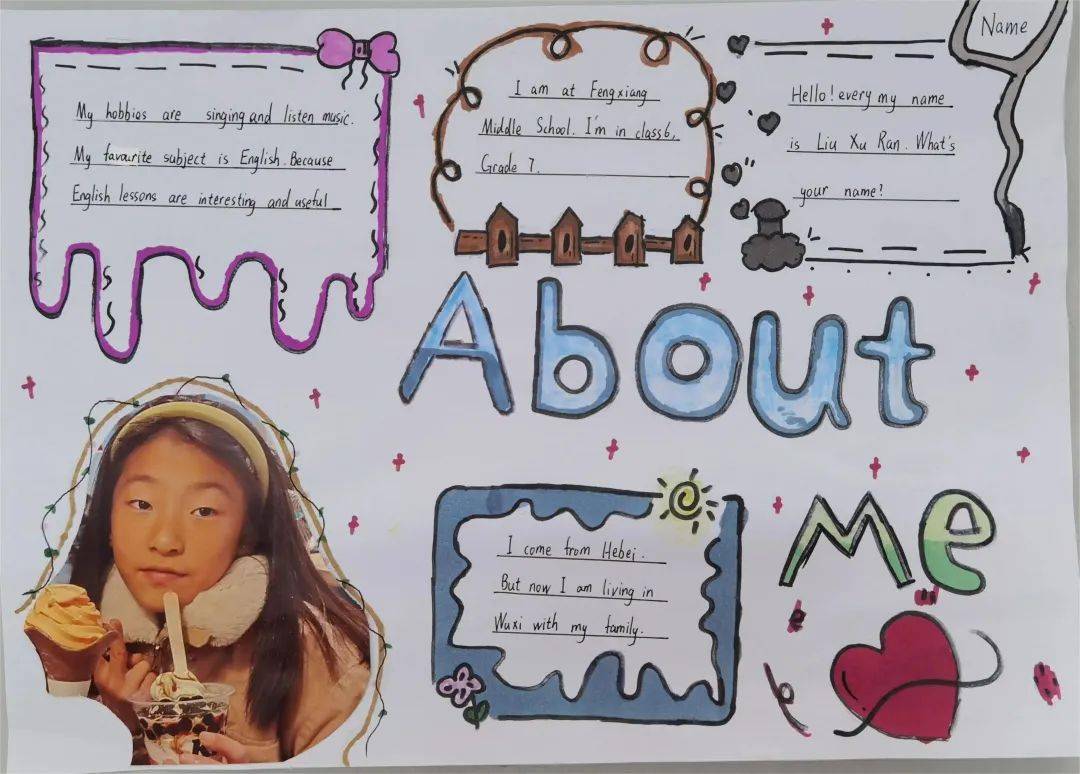 My hobbios are singing and listen music.
My favourite subject is English. Because
English lessons are interesting and useful
I am at Fengxiang
Middle School. I'm in class6,
Grade 7.
Name
Hello! every my name
is Liu Xu Ran. What's
your name?
About
Me
I come from Hebei.
But now I am living in
Wuxi with my family.